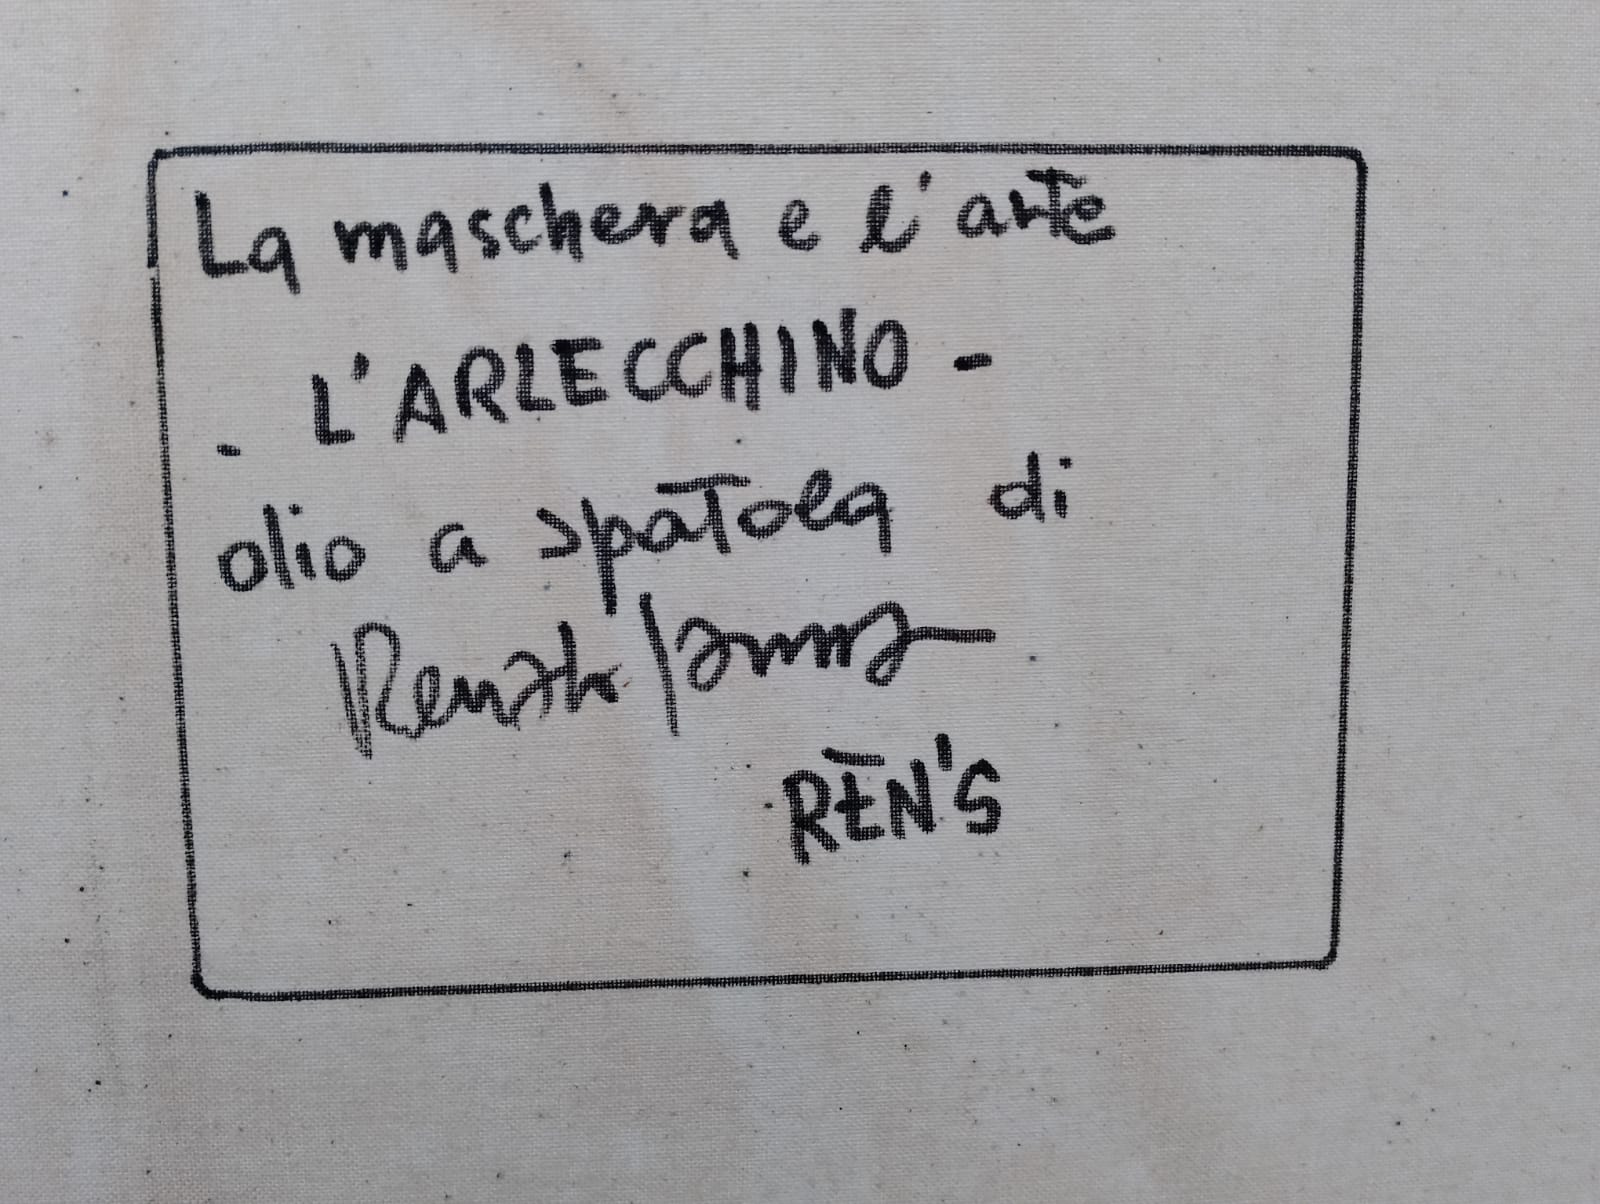 La maschera e l'arte
- L'ARLECCHINO -
olio a spatola di
RĒN'S